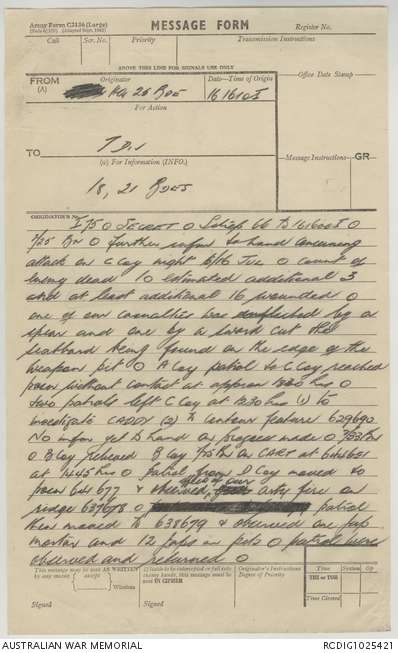 Army Form C2136 (Large)
MESSAGE FORM
Register No.
Call
Ser. No.
Priority
Transmission Instructions
ABOVE THIS LINE FOR SIGNALS USE ONLY
FROM
(A)
Originator
Date—Time of Origin
Office Date Stamp
26 BDE
161610I
For Action
TO
(W) For Information (INFO.)
Message Instructions
GR
18, 21 BDES
ORIGINATOR'S No.
I 75 O SECRET O Sitrep 66 to 161600I O
7/25 Bn O further infm to hand concerning
attack on C Coy night 15/16 Jul O count of
enemy dead 10 estimated additional 3
and at least additional 16 wounded O
one of own casualties was inflicted by a
spear and one by a sword cut the
scabbard being found on the edge of the
weapon pit O A Coy patrol to C Coy reached
posn without contact at approx 1230 hrs O
two patrols left C Coy at 1230 hrs (1) to
investigate CADDY (2) to contour feature 629690
No infm yet to hand on progress made O
O B Coy relieved B Coy
at 1445 hrs O patrol from D Coy moved to
posn 641677 & observed effect of our arty fire on
ridge 637678 O patrol
then moved to 638679 & observed one Jap
mortar and 12 Japs in pits O patrol were
observed and returned O
This message may be sent AS WRITTEN
by any means
except
Wireless
If liable to be intercepted or fall into
enemy hands, this message must be
sent IN CIPHER
Originator's Instructions
Degree of Priority
Time
System
Op
THI or TOR
Time Cleared
Signed
Signed
AUSTRALIAN WAR MEMORIAL
RCDIG1025421